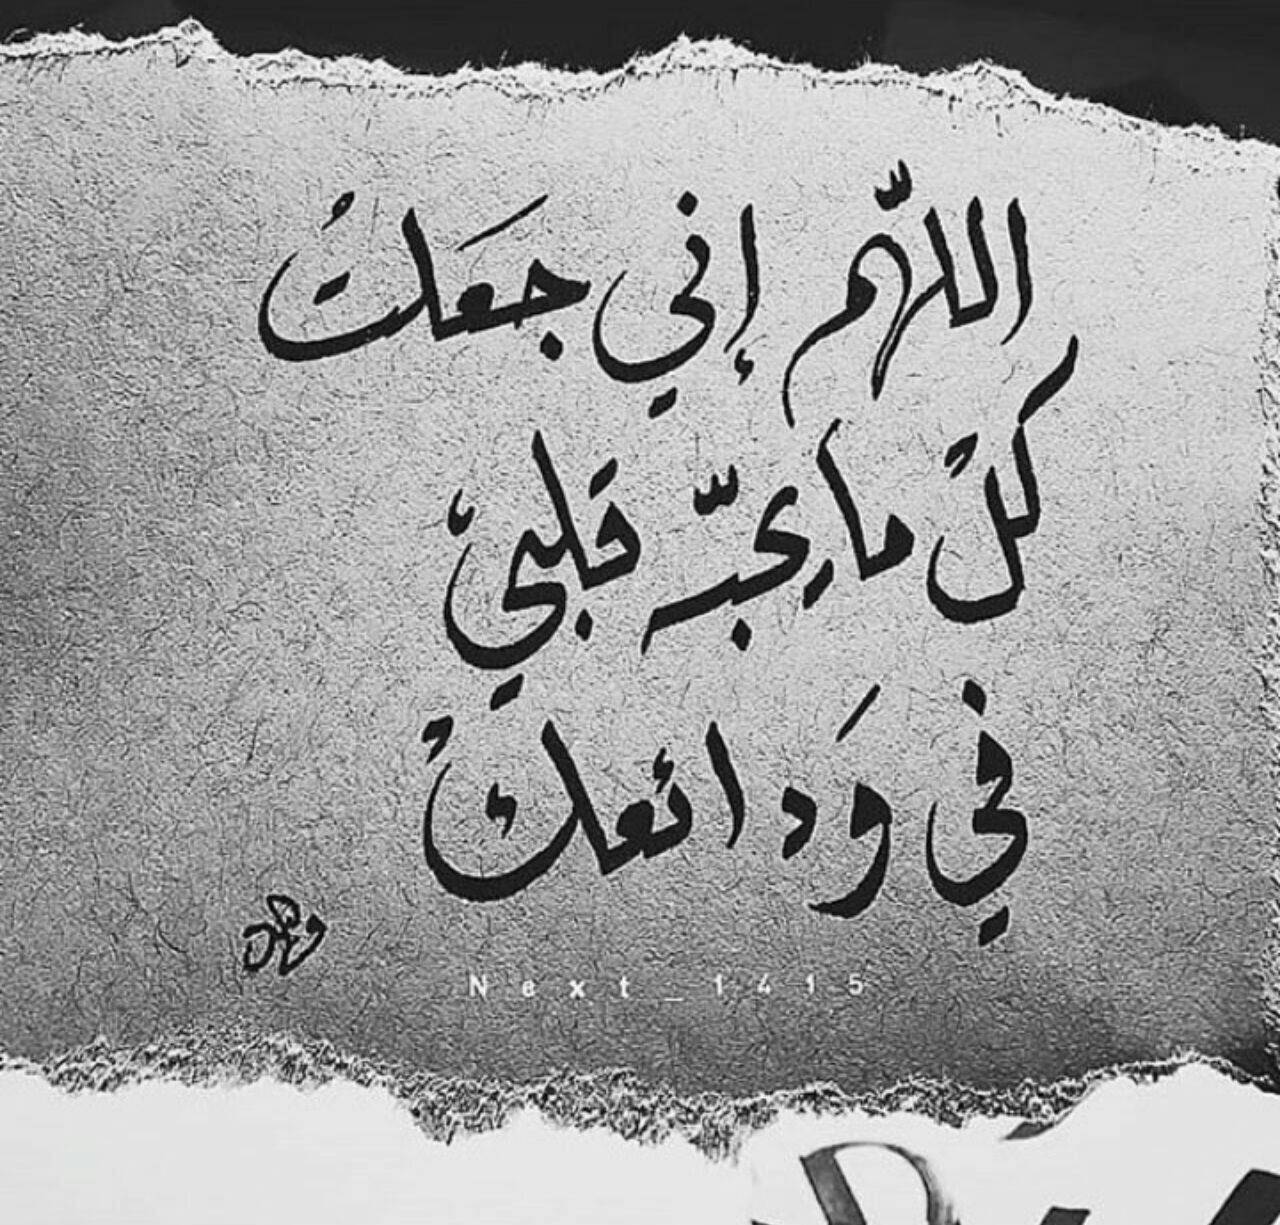 اللّهم إني جعَلتُ
كلْ ما يحبّه قلبيْ
في وَدائعكْ
Next_1415